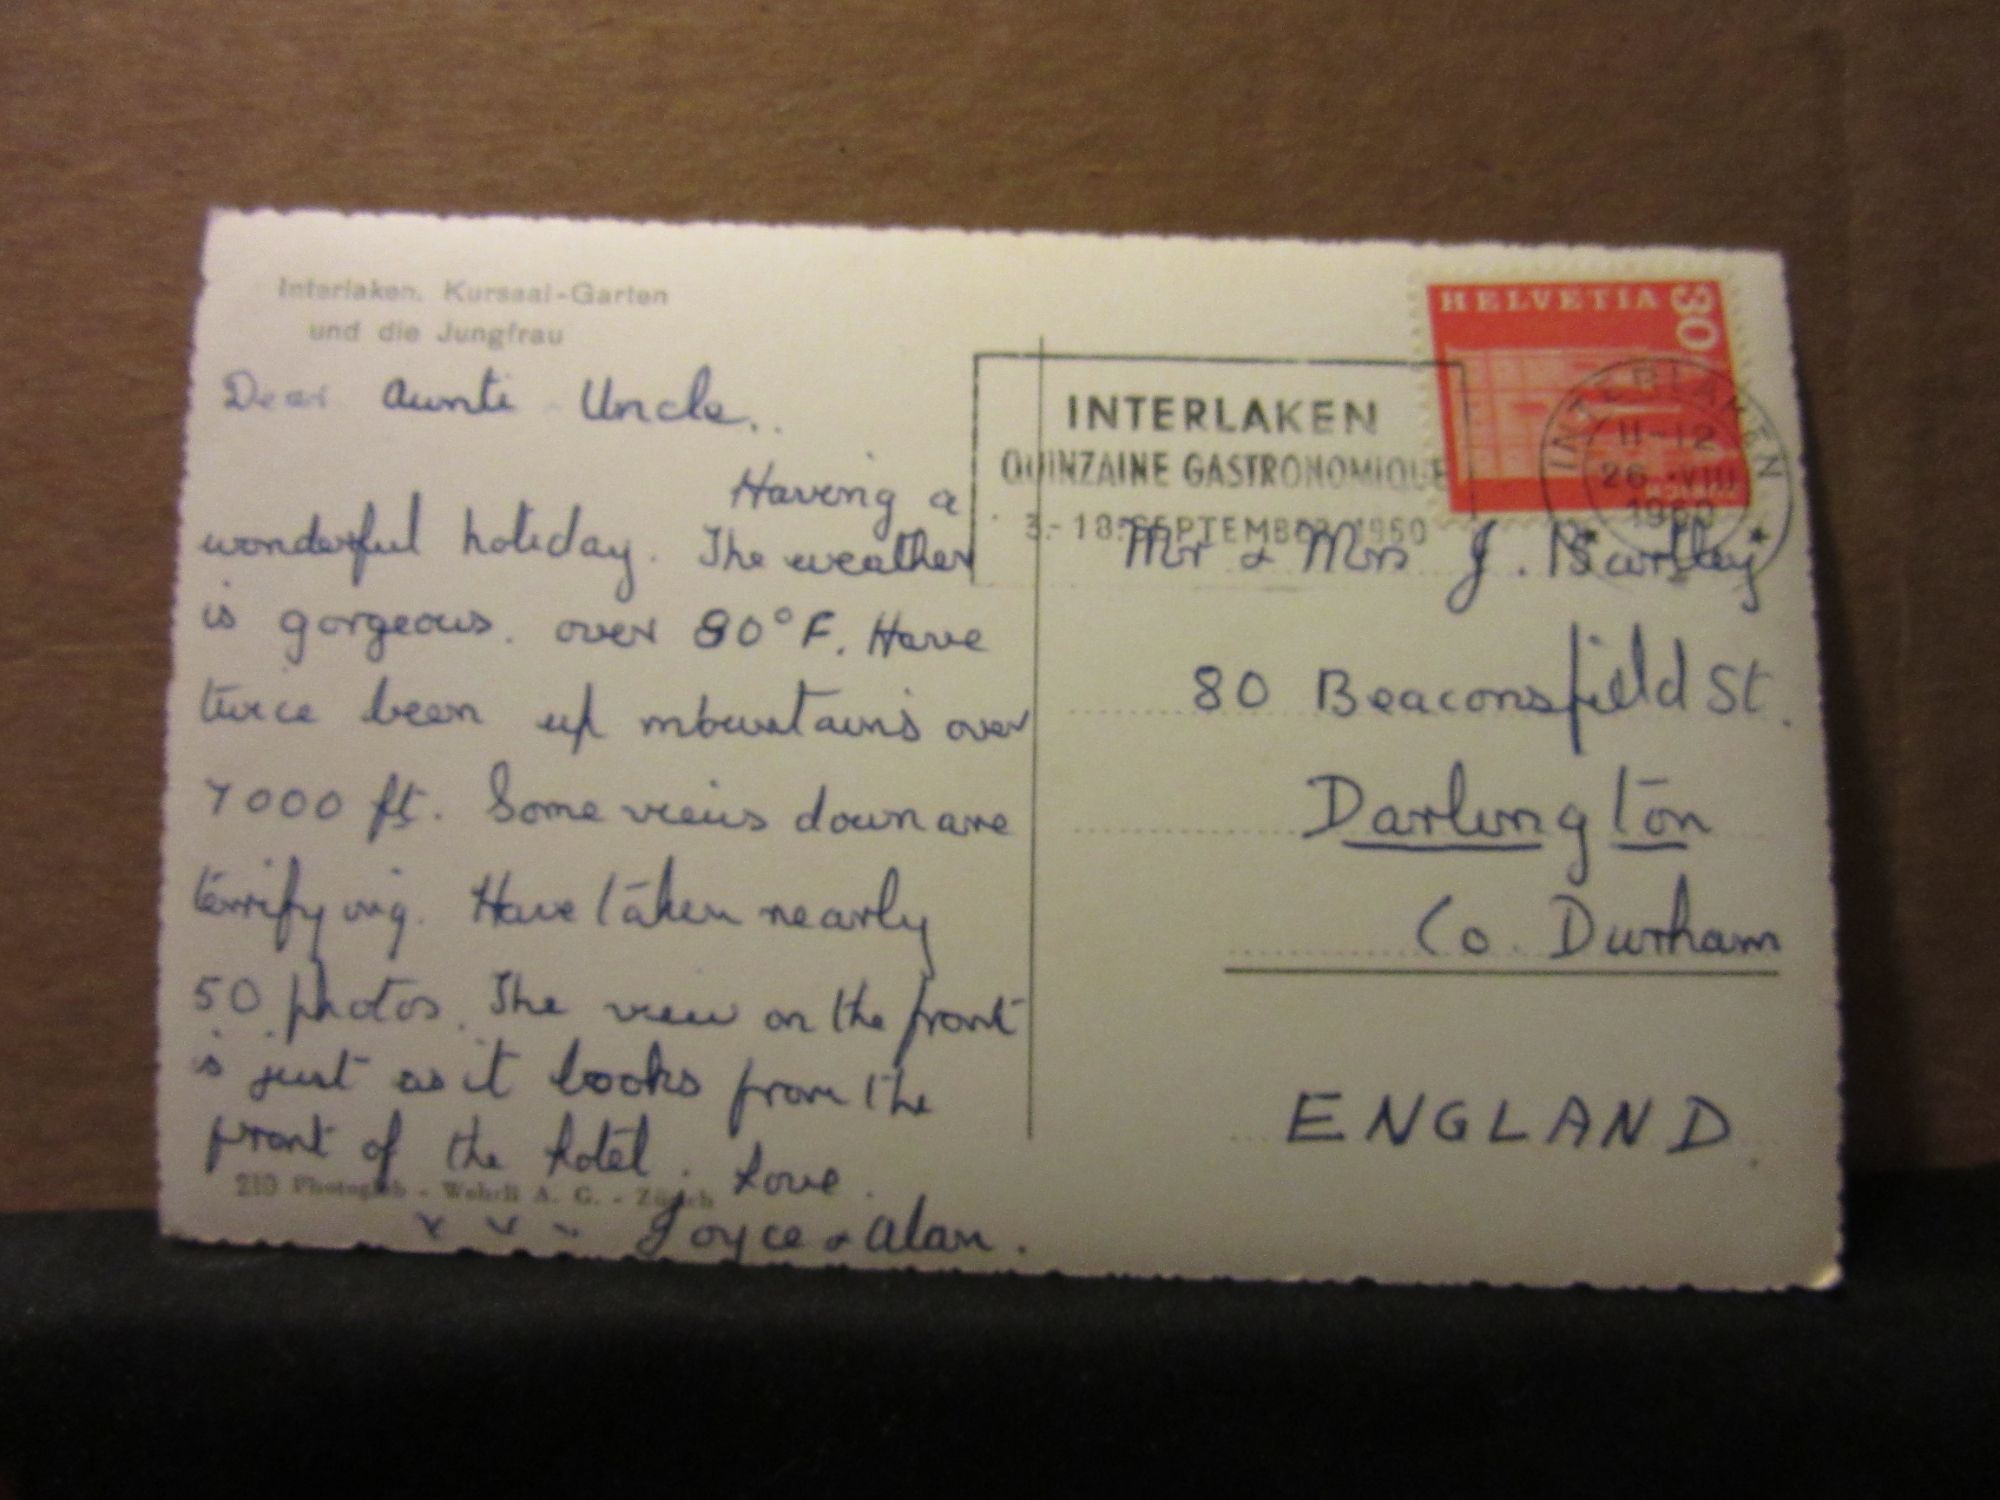 Interlaken. Kursaal-Garten
und die Jungfrau
Dear Aunti - Uncle..
Having a
wonderful holiday. The weather
is gorgeous. over 80°F. Have
twice been up mountains over
7000 ft. Some views down are
terrifying. Have taken nearly
50 photos. The view on the front
is just as it looks from the
front of the hotel. Love.
Joyce & Alan.
210 Photoglob - Wehrli A. G. - Zürich
INTERLAKEN
QUINZAINE GASTRONOMIQUE
3.-18. SEPTEMBER 1960
HELVETIA 30
INTERLAKEN
11-12
26.VIII
1960
Mr & Mrs J. Bartley
80 Beaconsfield St.
Darlington
Co. Durham
ENGLAND